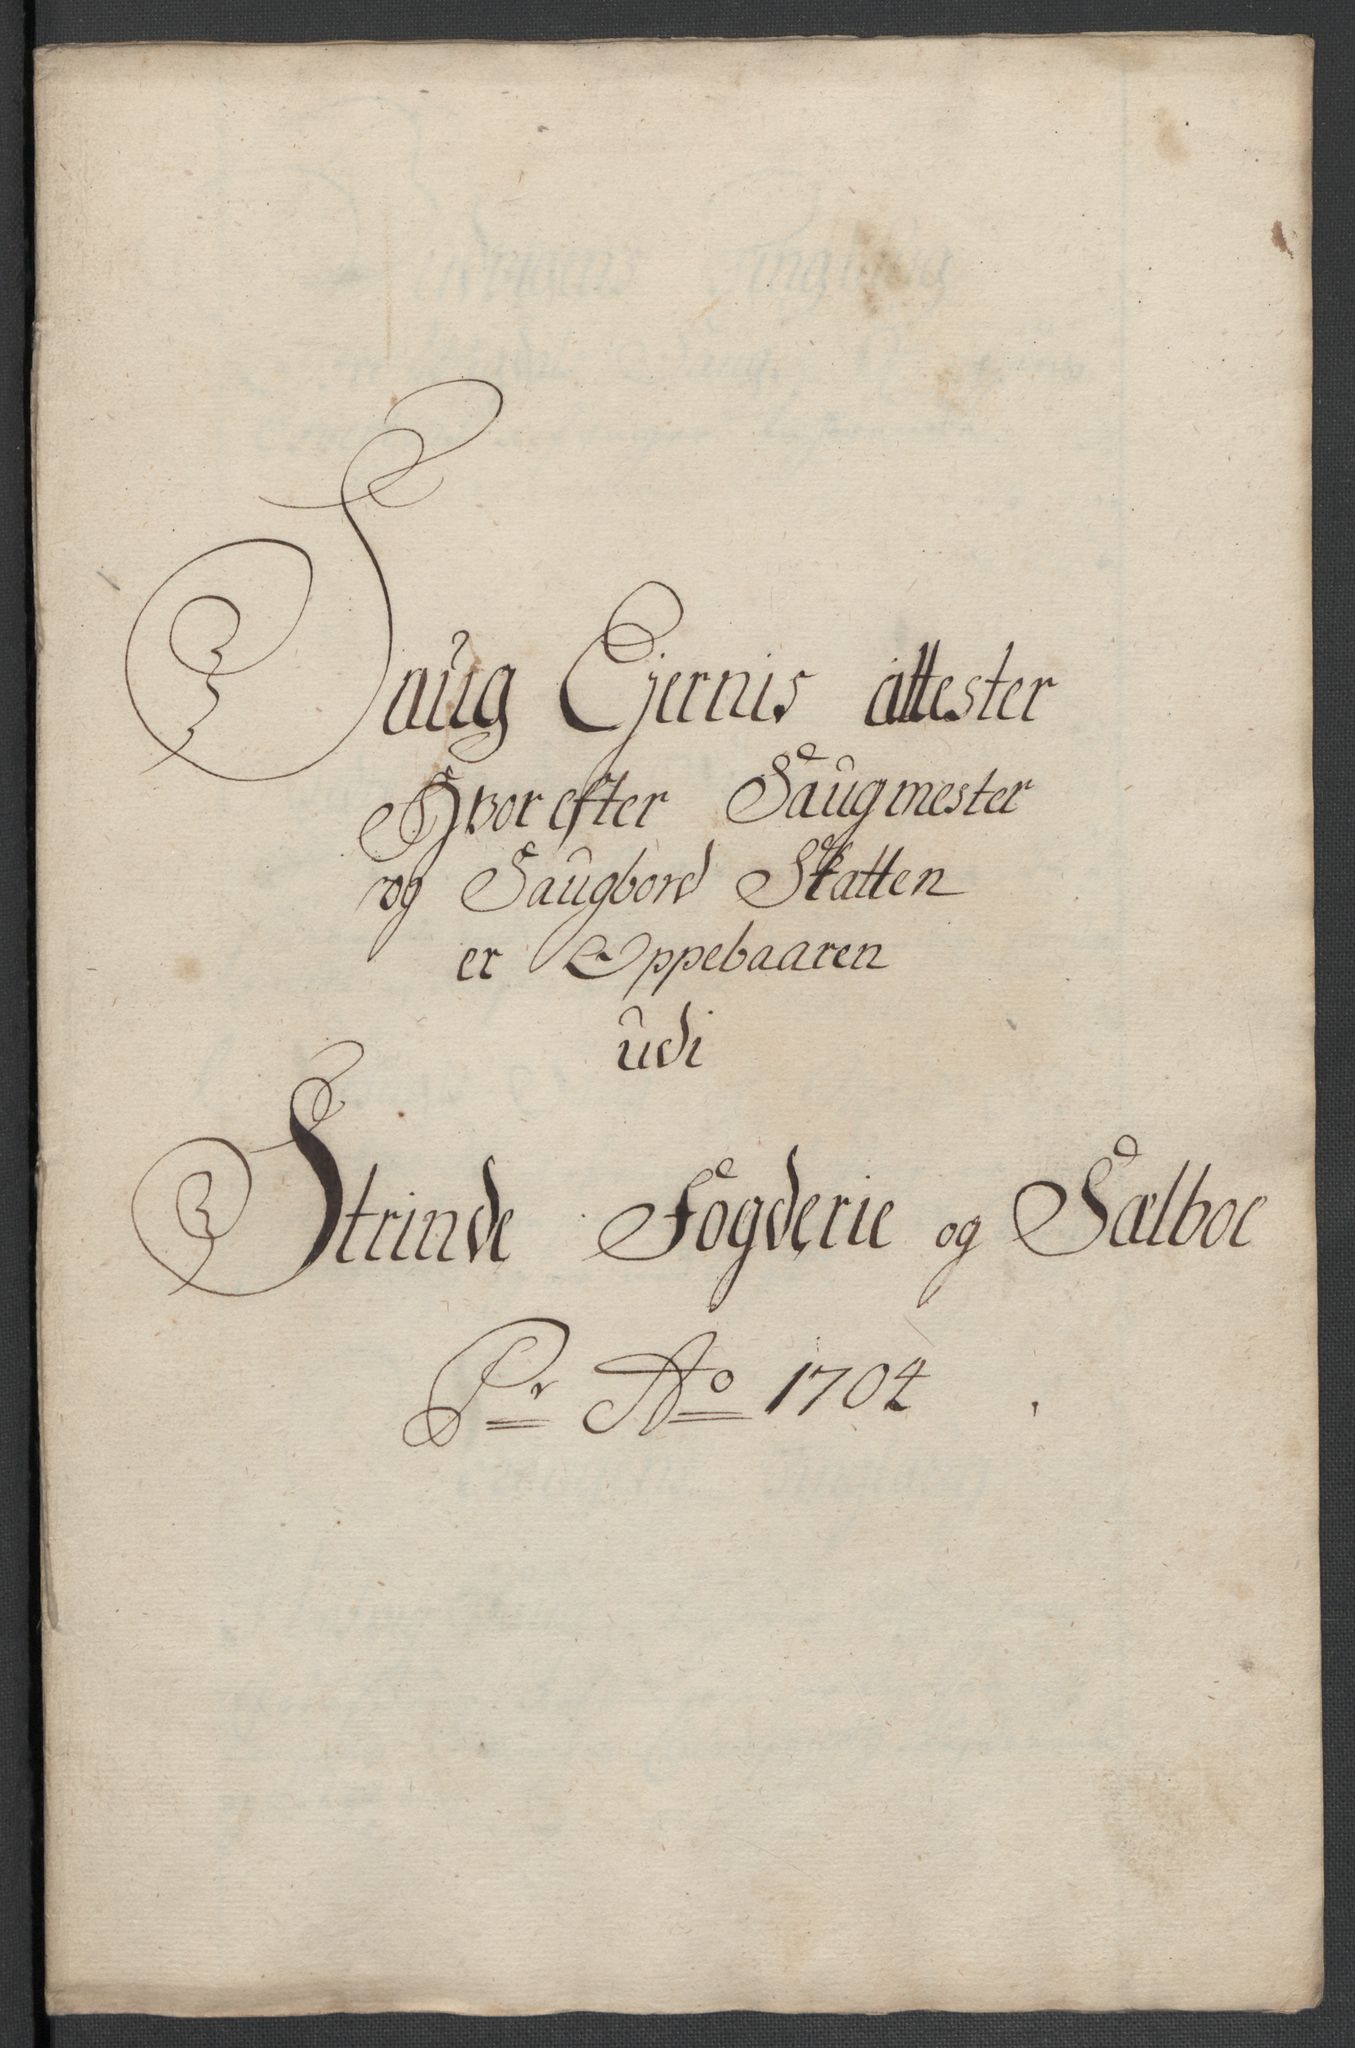 Saug Ejernis attester
Hvorefter Saugmester
og Saugbord Skatten
er Oppebaaren
udi
Strinde Fogderie og Sælboe
Pr Ao 1704